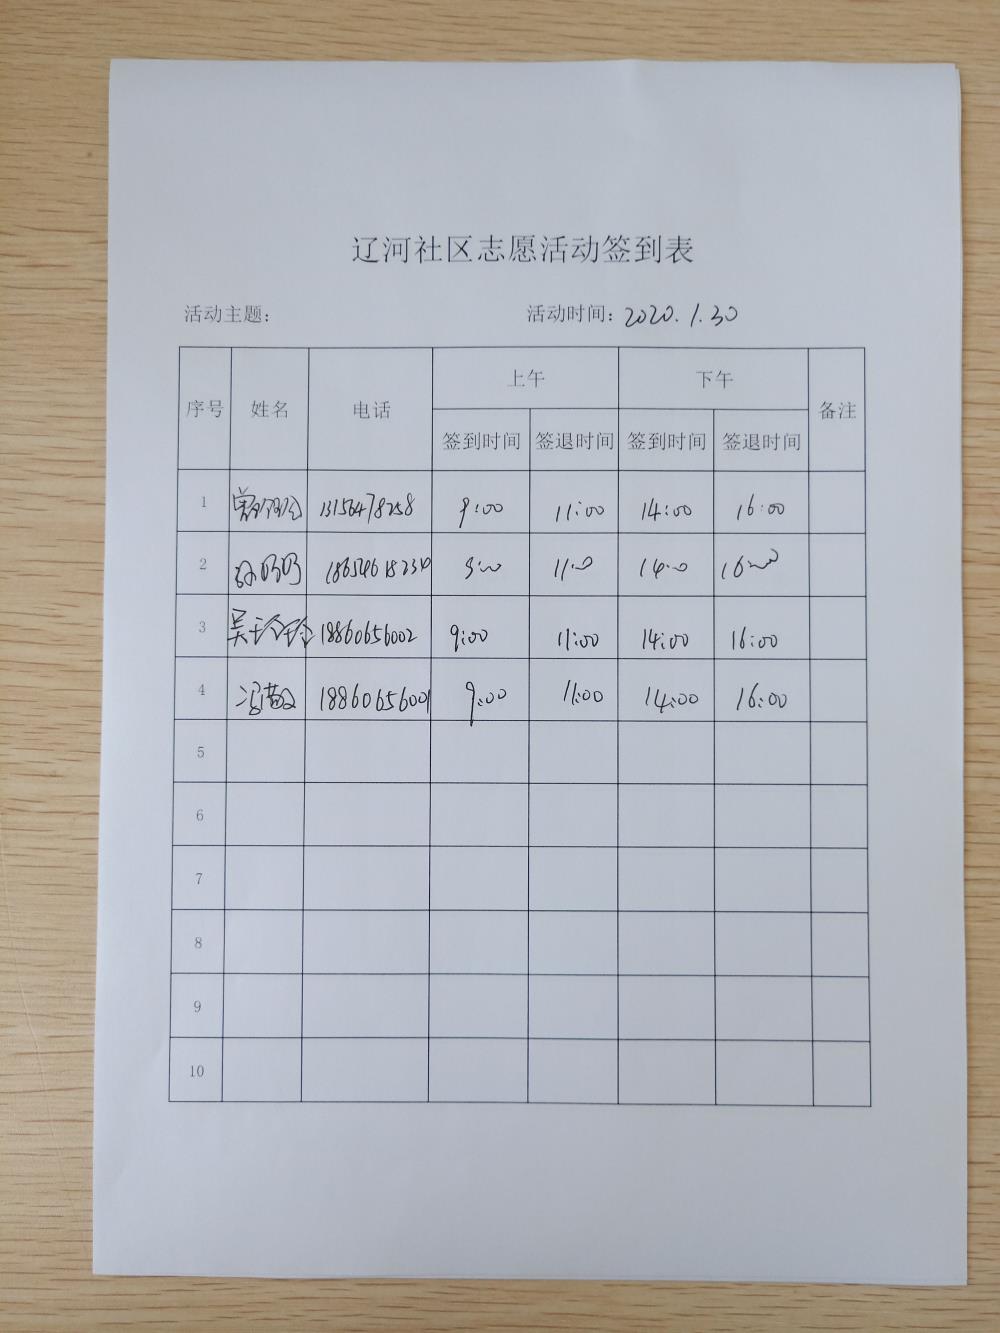 辽河社区志愿活动签到表
活动主题: 活动时间: 2020.1.30
序号 姓名 电话 上午 下午 备注
签到时间 签退时间 签到时间 签退时间
1 13156478258 9:00 11:00 14:00 16:00
2 9:00 11:00 14:00 16:00
3 吴玲玲 18860656002 9:00 11:00 14:00 16:00
4 18860656001 9:00 11:00 14:00 16:00
5
6
7
8
9
10